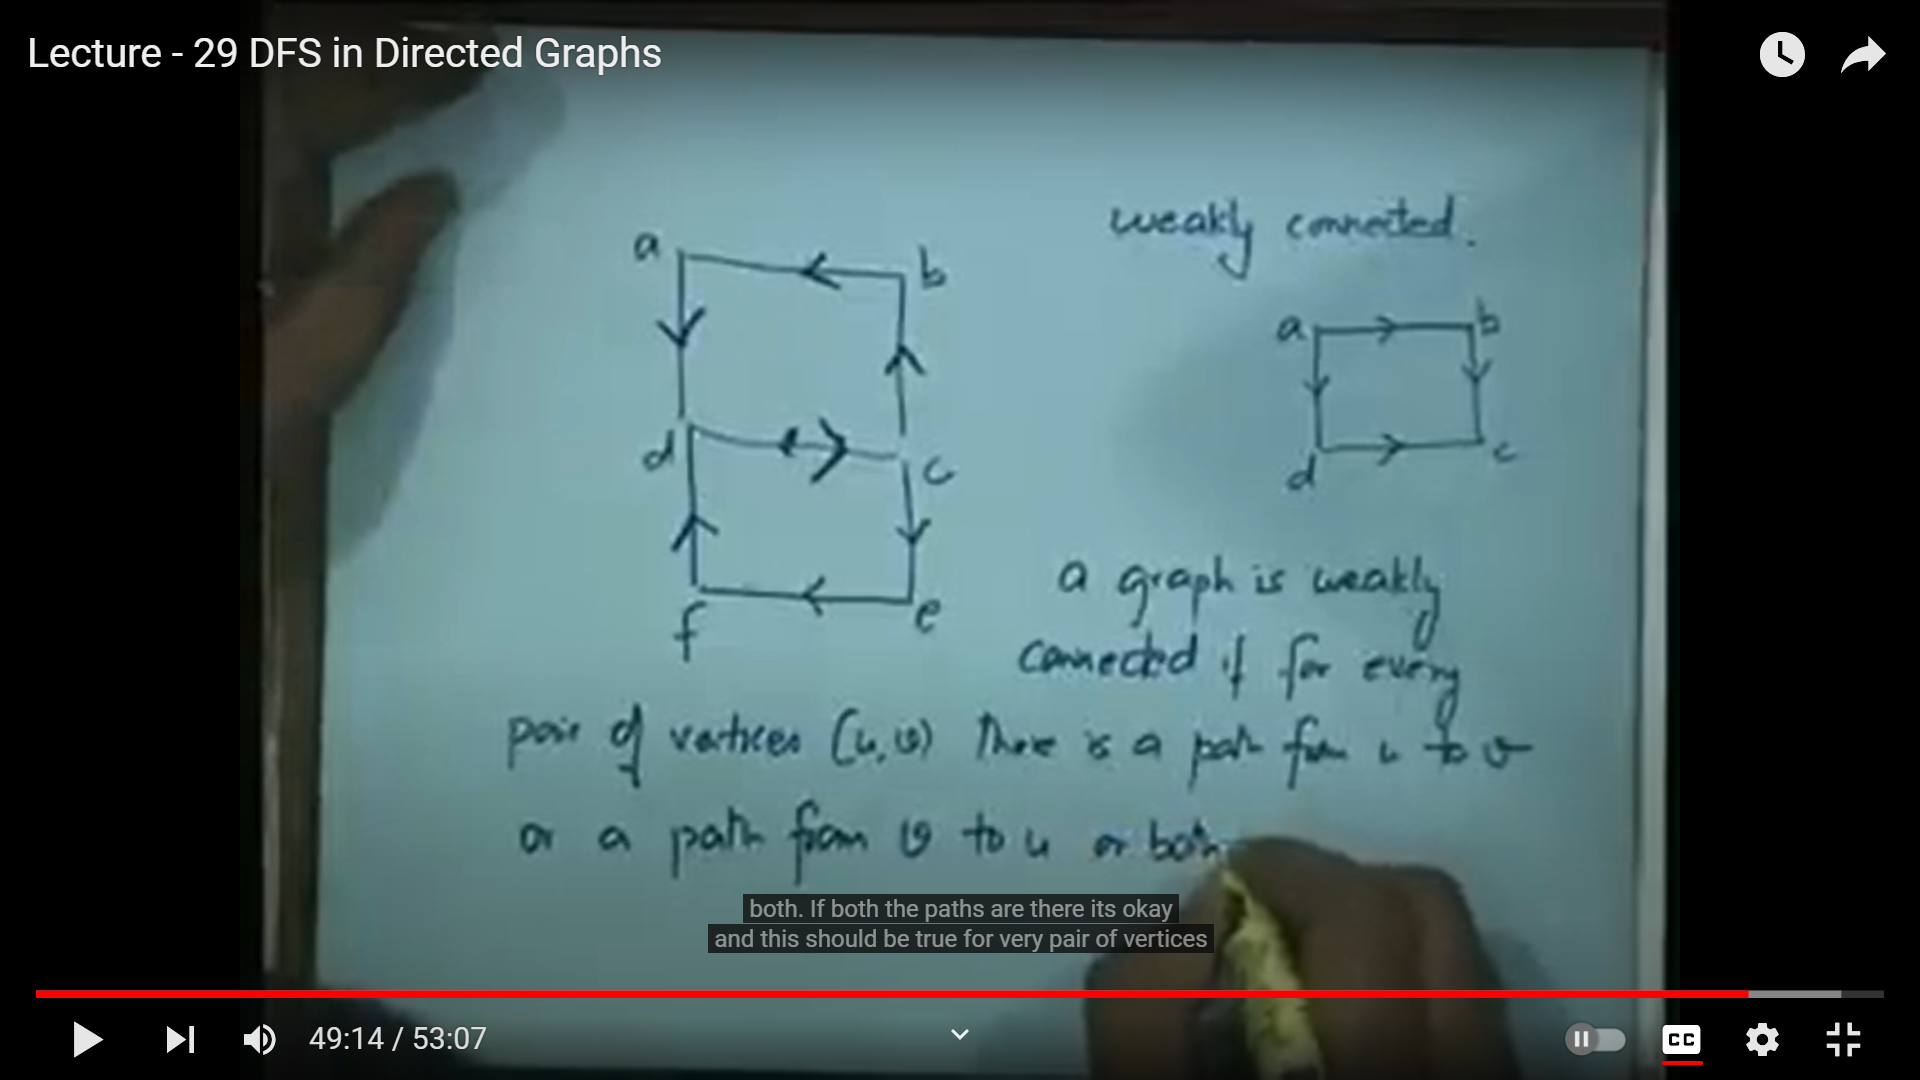 Lecture - 29 DFS in Directed Graphs
weakly connected.
a b
d c
f e
a b
d c
a graph is weakly
connected if for every
pair of vertices (u,v) there is a path from u to v
or a path from v to u or both
both. If both the paths are there its okay
and this should be true for very pair of vertices
49:14 / 53:07
CC